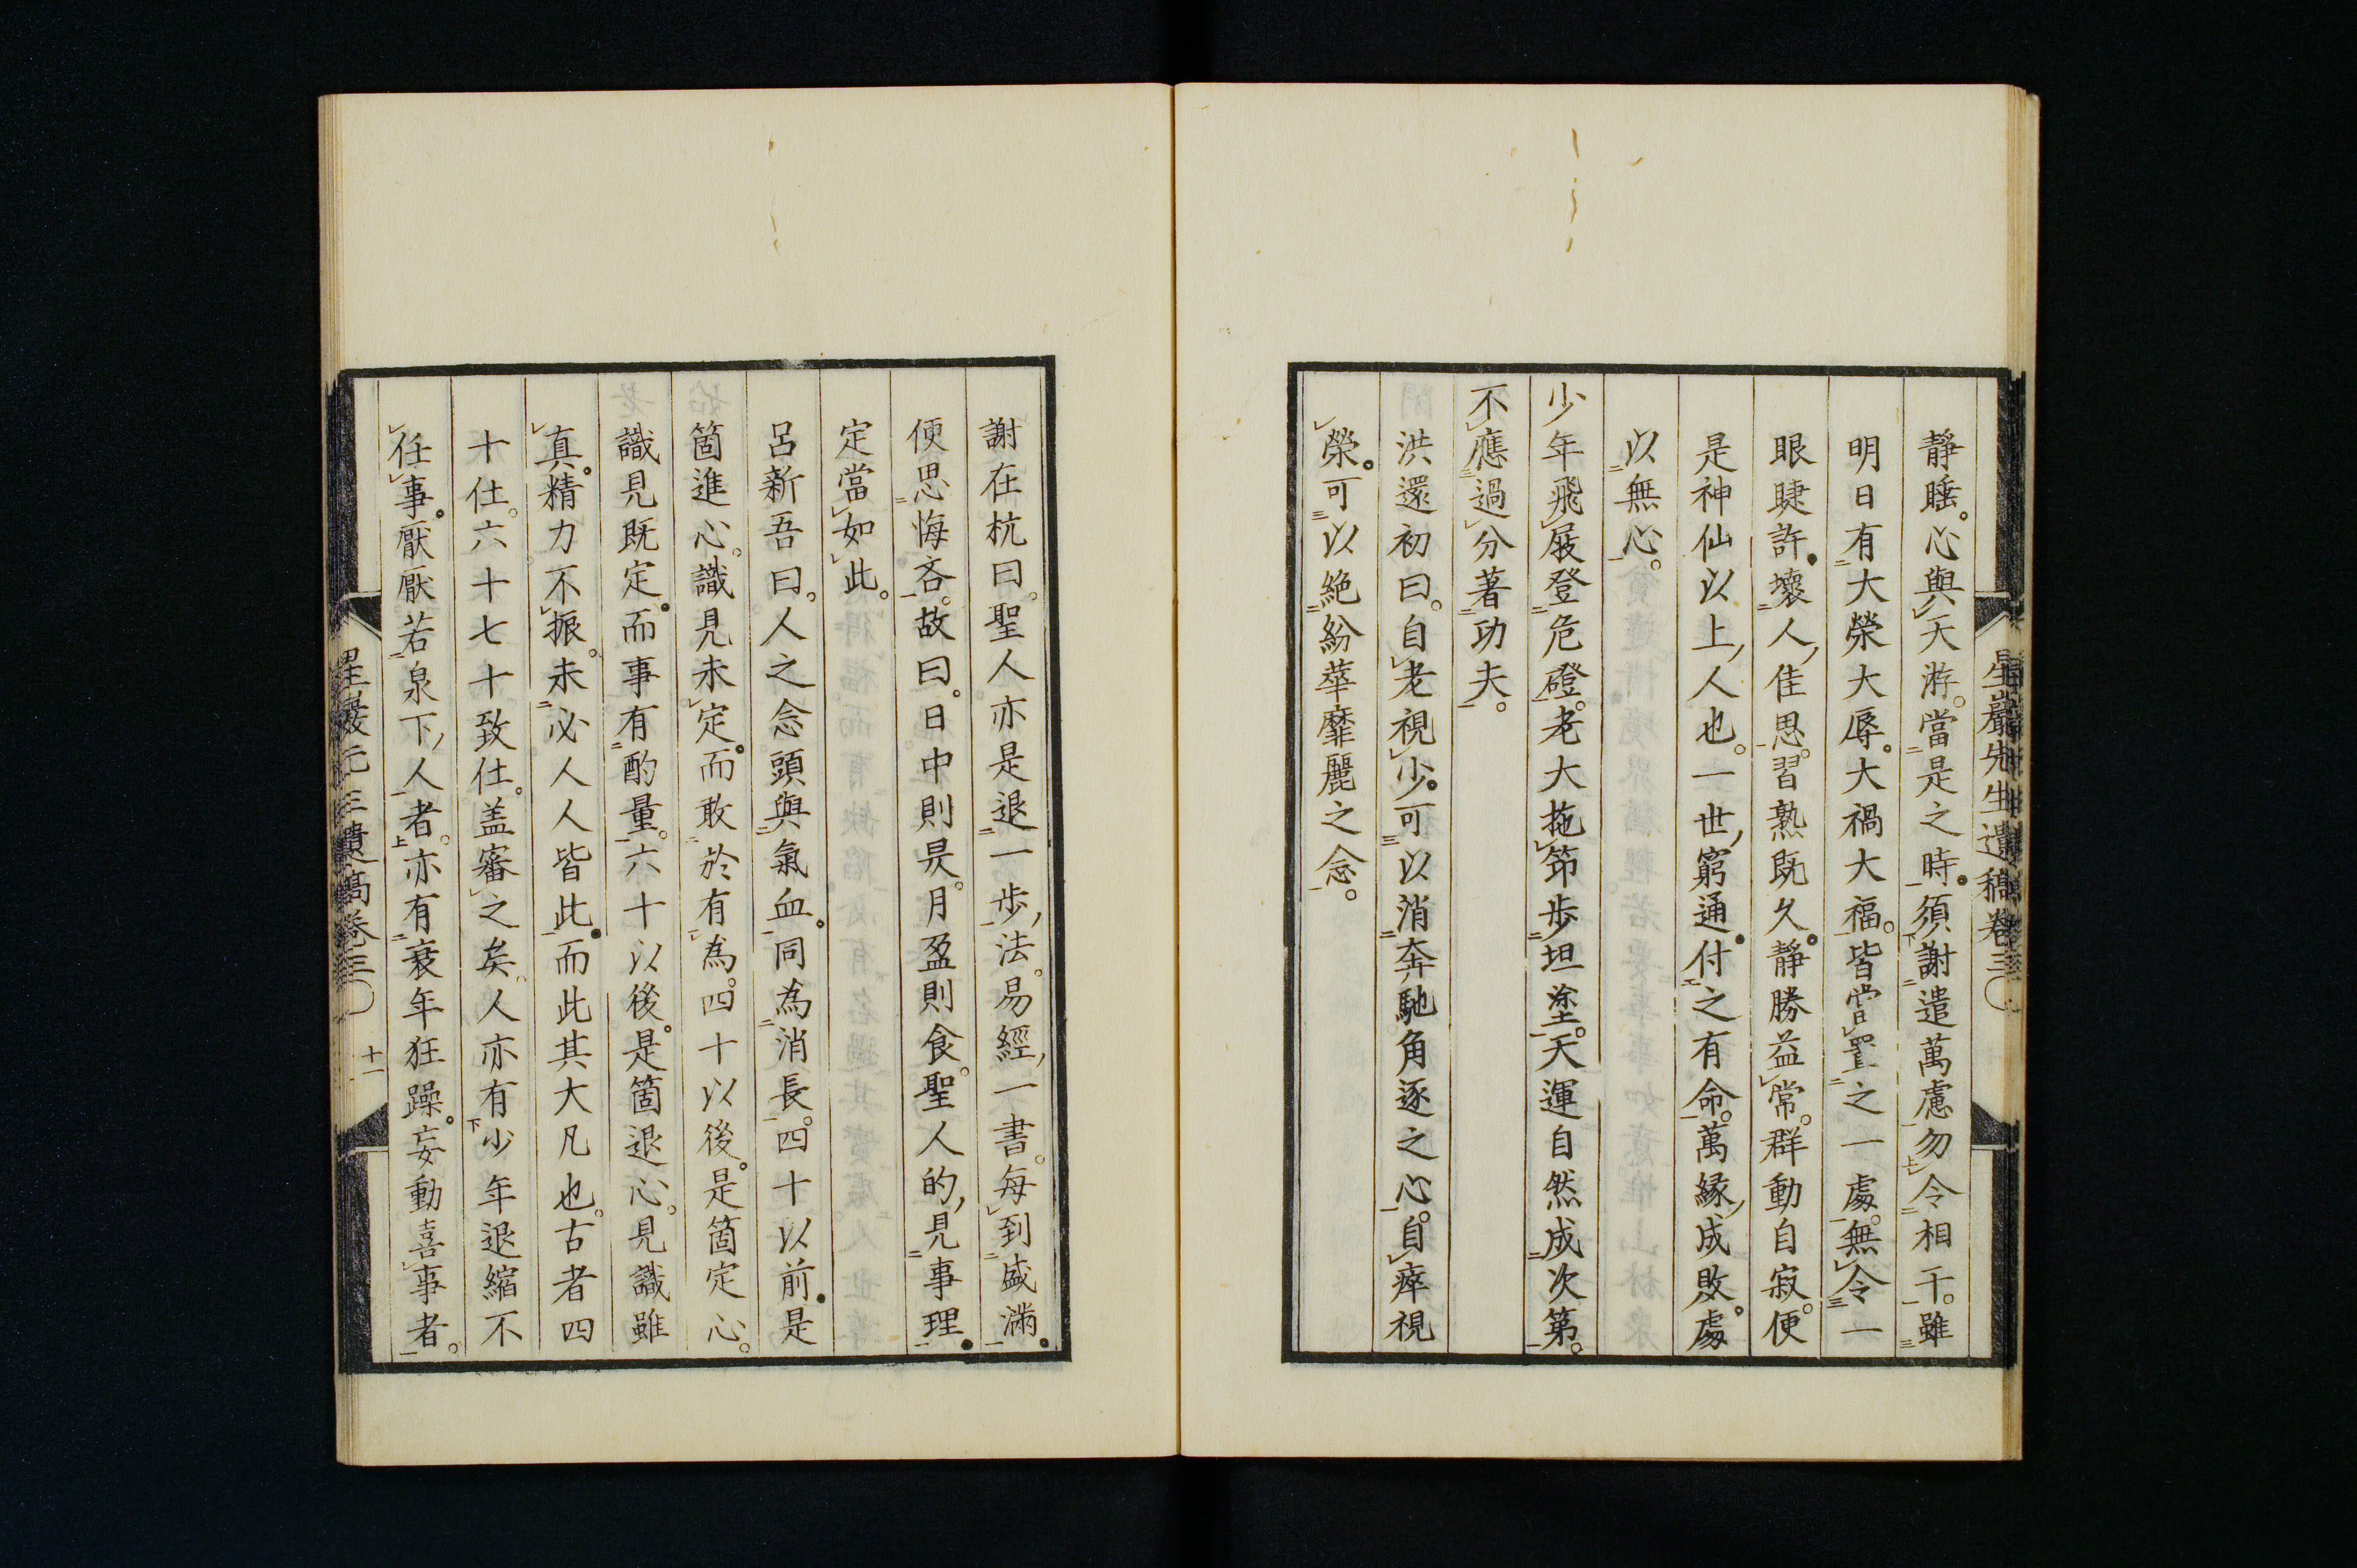 星巖先生遺稿卷三
靜睡。心與天游。當是之時。須謝遣萬慮勿令相干。雖
明日有大榮大辱。大禍大福。皆當置之一處。無令一
眼睫許壞人佳思。習熟既久。靜勝益常。群動自寂。便
是神仙以上人也。一世窮通。付之有命。萬緣成敗。處
以無心。
少年飛屐登危磴。老大拖筇步坦塗。天運自然成次第。
不應過分著功夫。
洪還初曰。自老視少。可以消奔馳角逐之心。自瘁視
榮。可以絶紛華靡麗之念。
謝在杭曰。聖人亦是退一步法。易經一書。每到盛滿。
便思悔吝。故曰。日中則昃。月盈則食。聖人的見事理。
定當如此。
呂新吾曰。人之念頭與氣血。同為消長。四十以前。是
箇進心。識見未定。而敢於有為。四十以後。是箇定心。
識見既定。而事有酌量。六十以後。是箇退心。見識雖
真。精力不振。未必人人皆此。而此其大凡也。古者四
十仕。六十七十致仕。盖審之矣。人亦有少年退縮不
任事。厭厭若泉下人者。亦有衰年狂躁。妄動喜事者。
十一